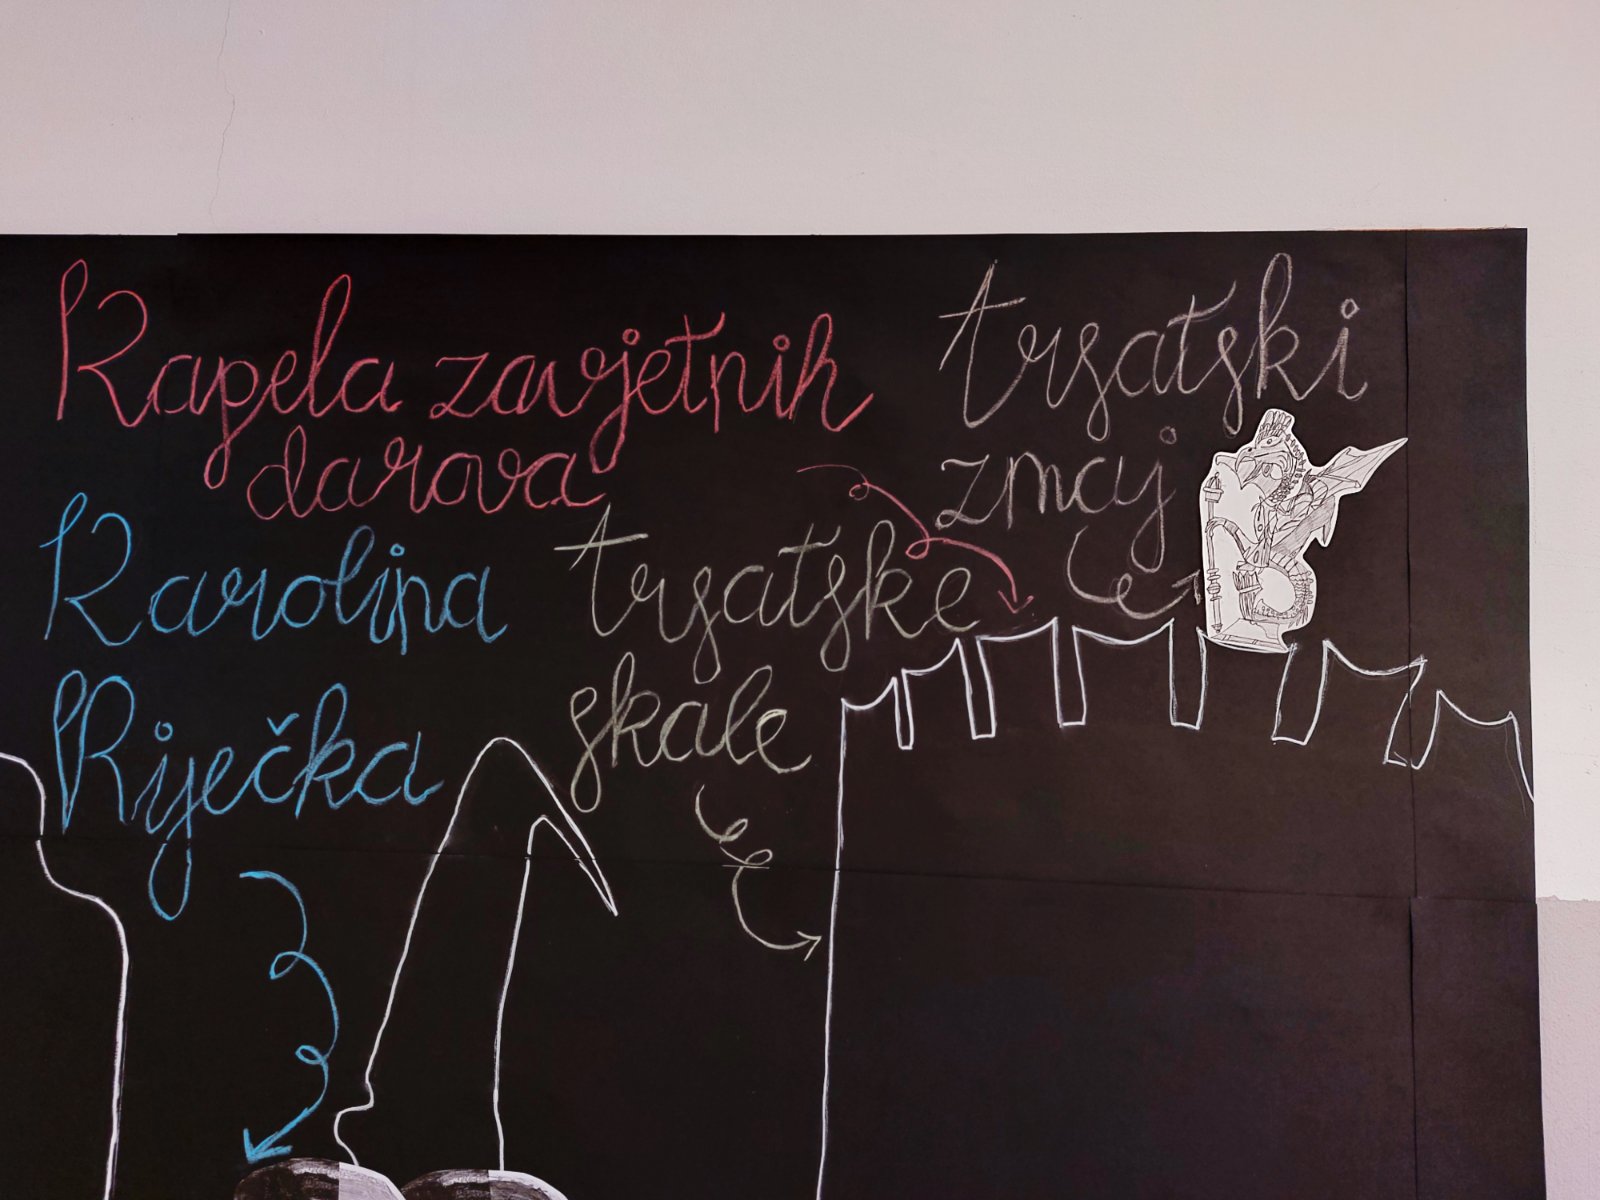 Kapela zavjetnih
darova
trsatski
zmaj
Karolina
Riječka
trsatske
skale